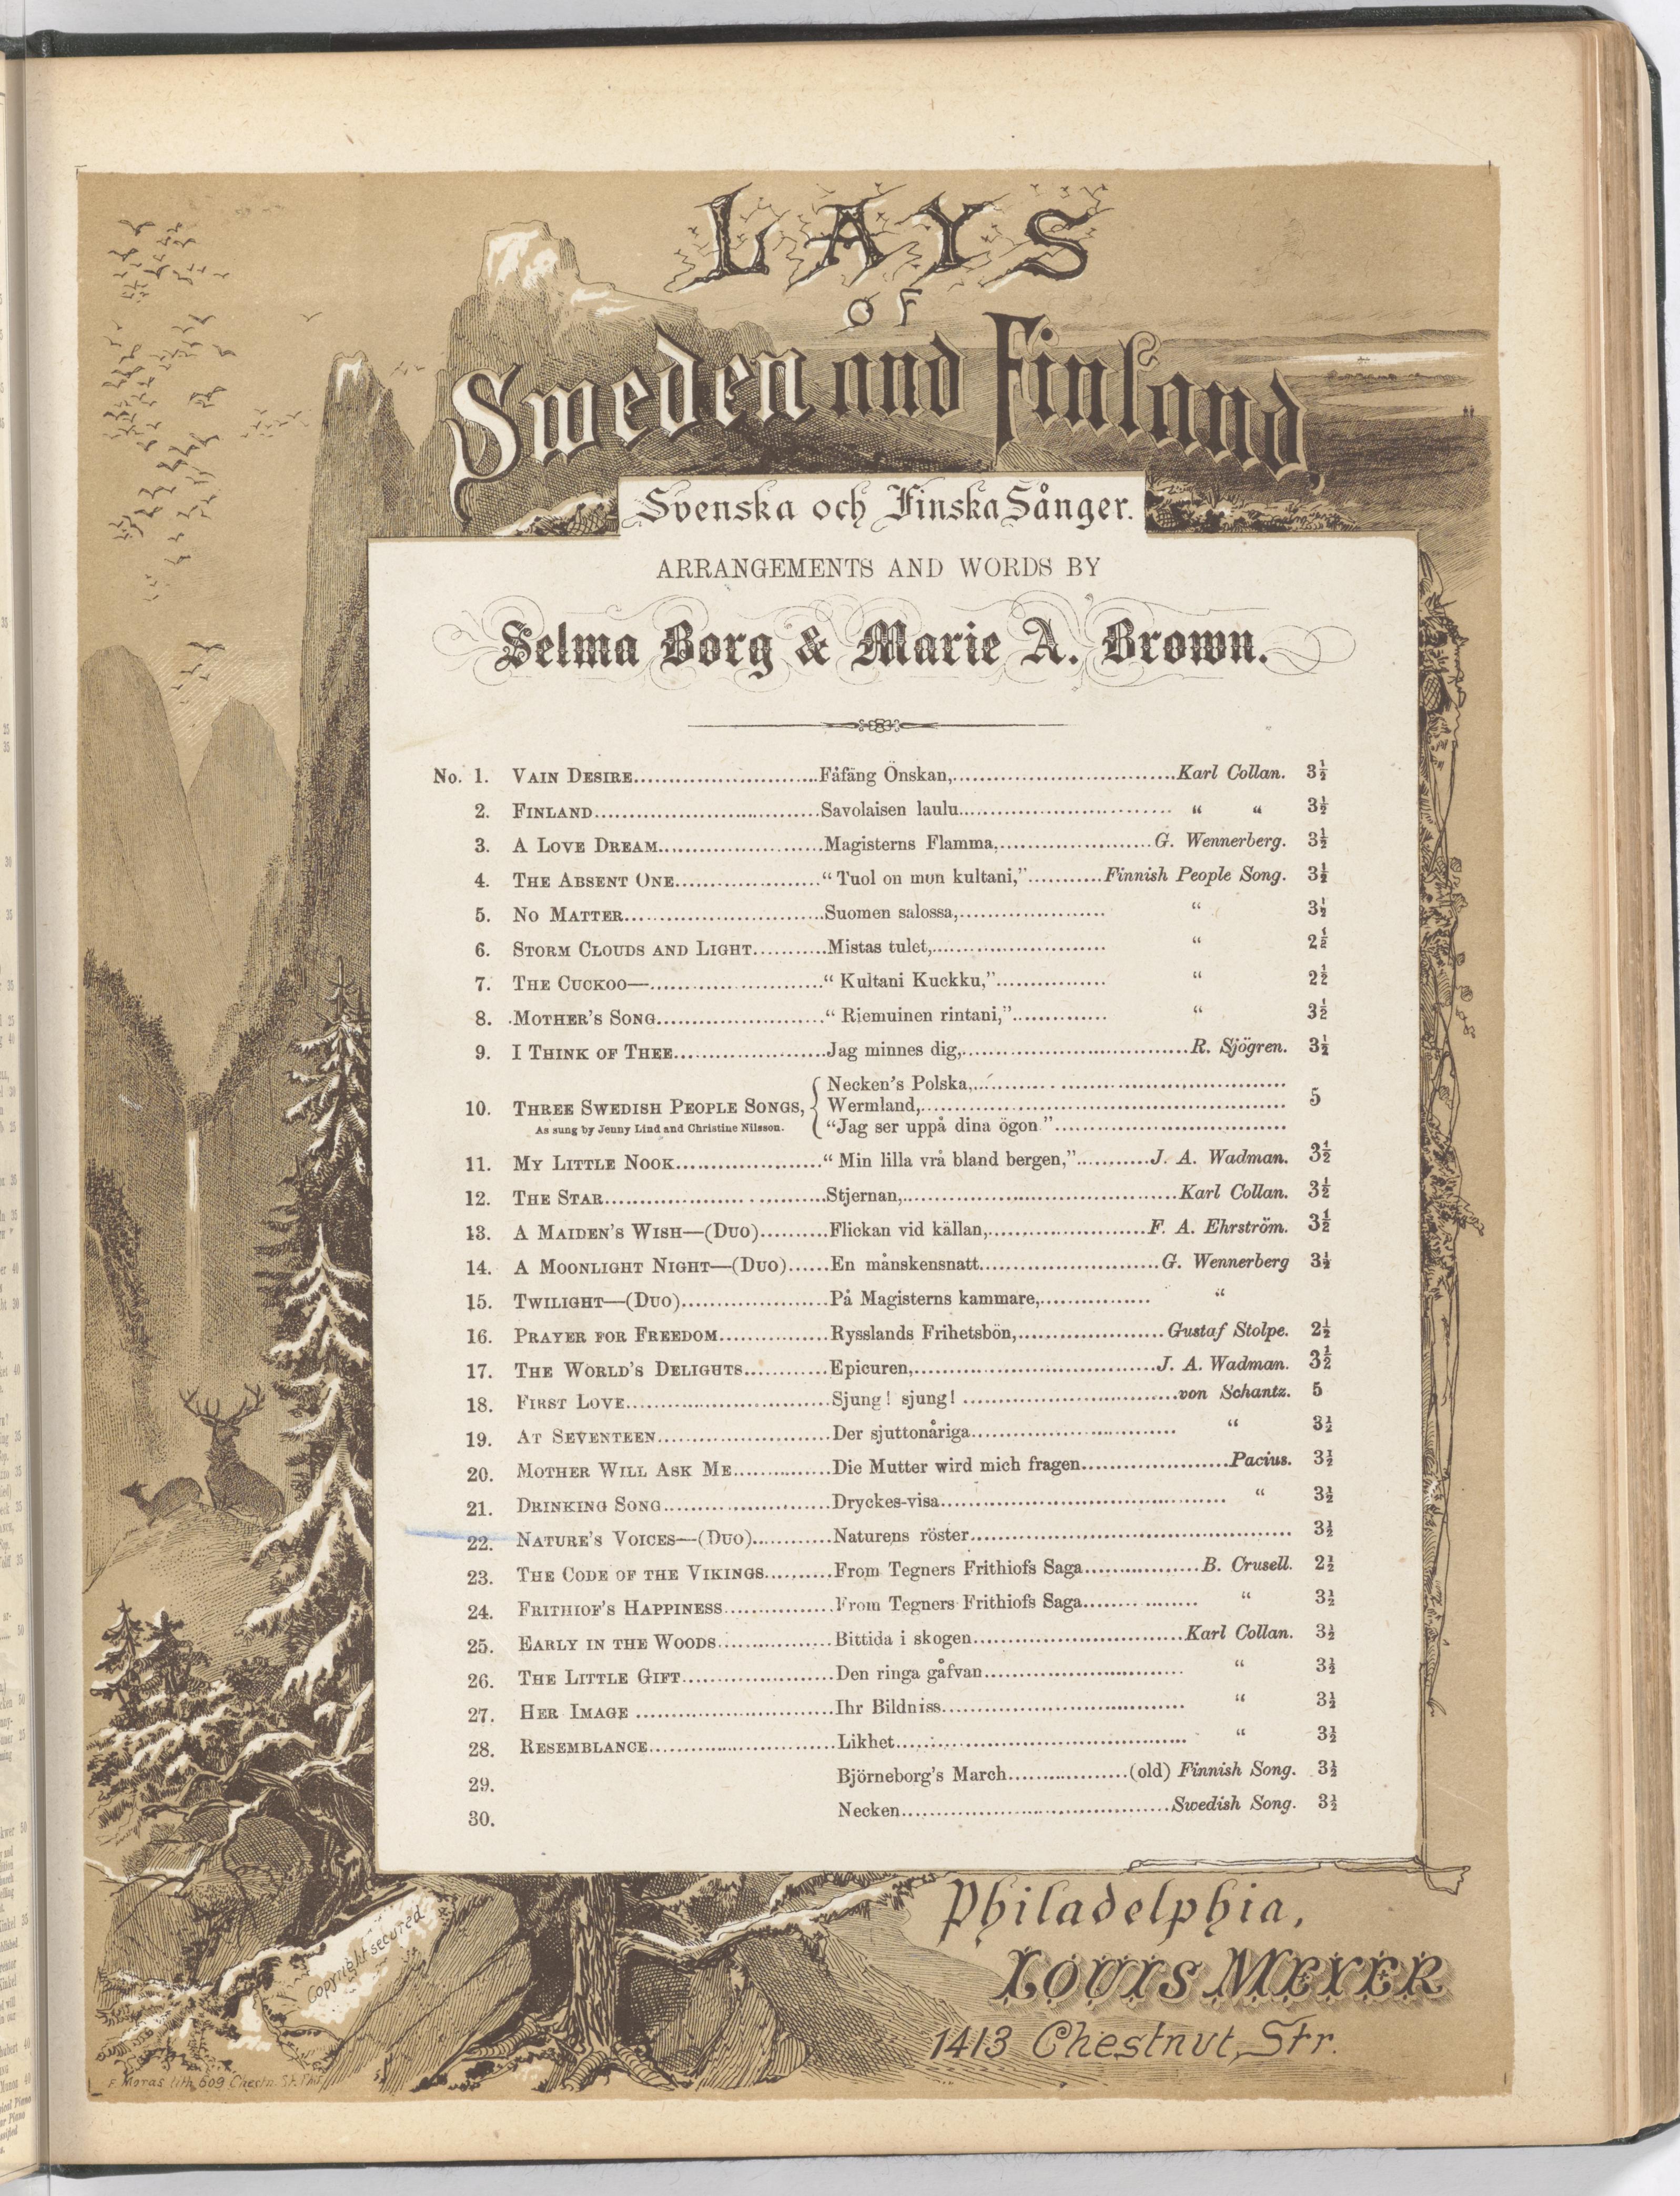 LAYS
OF
Sweden and Finland,
Svenska och Finska Sånger.
ARRANGEMENTS AND WORDS BY
Selma Borg & Marie A. Brown.
No. 1. VAIN DESIRE..........Fåfäng Önskan,..........Karl Collan. 3½
2. FINLAND..........Savolaisen laulu.......... " " 3½
3. A LOVE DREAM..........Magisterns Flamma,..........G. Wennerberg. 3½
4. THE ABSENT ONE.........."Tuol on mun kultani,"..........Finnish People Song. 3½
5. NO MATTER..........Suomen salossa,.......... " 3½
6. STORM CLOUDS AND LIGHT..........Mistas tulet,.......... " 2½
7. THE CUCKOO—.........." Kultani Kuckku,".......... " 2½
8. MOTHER'S SONG.........." Riemuinen rintani,".......... " 3½
9. I THINK OF THEE..........Jag minnes dig,..........R. Sjögren. 3½
Necken's Polska,..........
10. THREE SWEDISH PEOPLE SONGS, Wermland,.......... 5
As sung by Jenny Lind and Christine Nilsson. "Jag ser uppå dina ögon."..........
11. MY LITTLE NOOK.........." Min lilla vrå bland bergen,"..........J. A. Wadman. 3½
12. THE STAR..........Stjernan,..........Karl Collan. 3½
13. A MAIDEN'S WISH—(DUO)..........Flickan vid källan,..........F. A. Ehrström. 3½
14. A MOONLIGHT NIGHT—(DUO)......En månskensnatt..........G. Wennerberg 3½
15. TWILIGHT—(DUO)..........På Magisterns kammare,.......... "
16. PRAYER FOR FREEDOM..........Rysslands Frihetsbön,..........Gustaf Stolpe. 2½
17. THE WORLD'S DELIGHTS..........Epicuren,..........J. A. Wadman. 3½
18. FIRST LOVE..........Sjung! sjung! ..........von Schantz. 5
19. AT SEVENTEEN..........Der sjuttonåriga.......... " 3½
20. MOTHER WILL ASK ME..........Die Mutter wird mich fragen..........Pacius. 3½
21. DRINKING SONG..........Dryckes-visa.......... " 3½
22. NATURE'S VOICES—(DUO)..........Naturens röster.......... 3½
23. THE CODE OF THE VIKINGS..........From Tegners Frithiofs Saga..........B. Crusell. 2½
24. FRITHIOF'S HAPPINESS..........From Tegners Frithiofs Saga.......... " 3½
25. EARLY IN THE WOODS..........Bittida i skogen..........Karl Collan. 3½
26. THE LITTLE GIFT..........Den ringa gåfvan.......... " 3½
27. HER IMAGE ..........Ihr Bildniss.......... " 3½
28. RESEMBLANCE..........Likhet.......... " 3½
29. Björneborg's March..........(old) Finnish Song. 3½
30. Necken..........Swedish Song. 3½
Copyright secured
Philadelphia,
LOUIS MEYER
1413 Chestnut, Str.
F. Moras lith. 609 Chestn. St. Phi